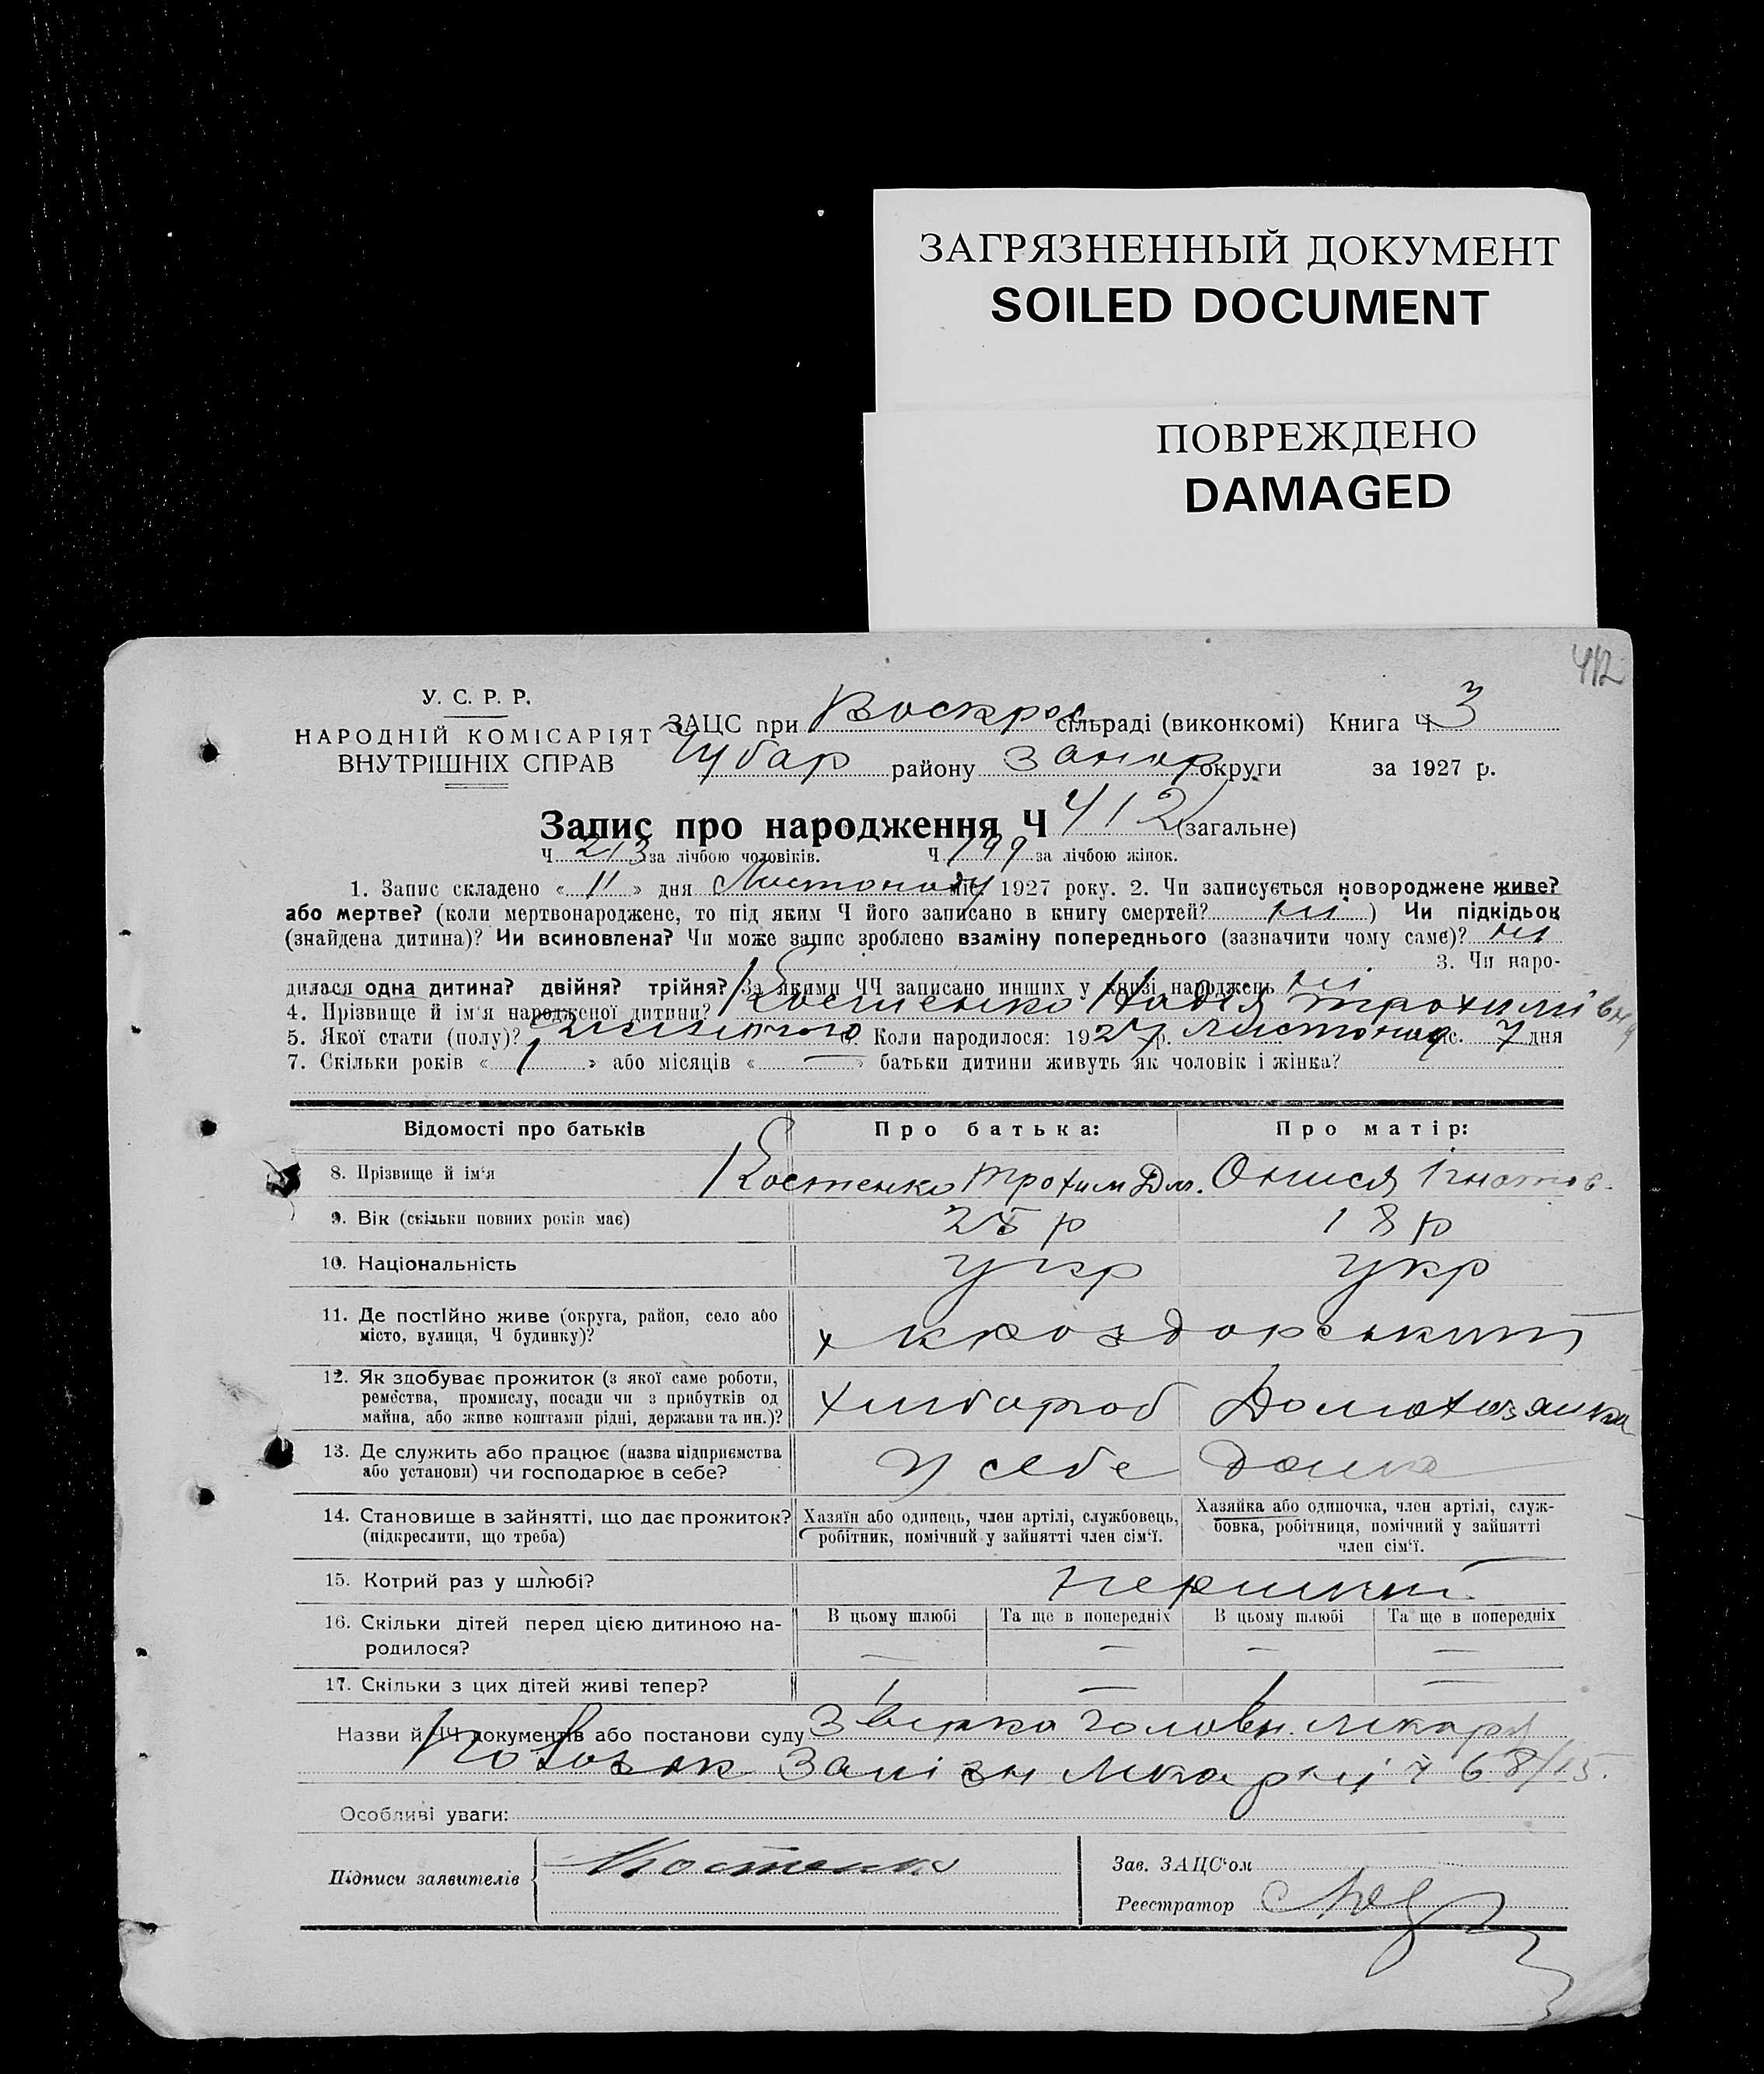 ЗАГРЯЗНЕННЫЙ ДОКУМЕНТ
SOILED DOCUMENT
ПОВРЕЖДЕНО
DAMAGED
412
У. С. Р. Р.
НАРОДНІЙ КОМІСАРІЯТ
ВНУТРІШНІХ СПРАВ
ЗАЦС при Воскрес сільраді (виконкомі) Книга Ч 3
Чубар району Запор округи за 1927 р.
Запис про народження Ч 412 (загальне)
Ч 213 за лічбою чоловіків. Ч 199 за лічбою жінок.
1. Запис складено « 11 » дня Листопаду міс. 1927 року. 2. Чи записується новороджене живе?
або мертве? (коли мертвонароджене, то під яким Ч його записано в книгу смертей? ні ) Чи підкідьок
(знайдена дитина)? Чи всиновлена? Чи може запис зроблено взаміну попереднього (зазначити чому саме)? ні
3. Чи наро-
дилася одна дитина? двійня? трійня? За якими ЧЧ записано инших у книзі народжень ні
4. Прізвище й ім'я народженої дитини? Костенко Надія Трохимівна
5. Якої стати (полу)? жіночого 6. Коли народилося: 1927 р. Листопад міс. 7 дня
7. Скільки років « 1 » або місяців « — » батьки дитини живуть як чоловік і жінка?
Відомості про батьків Про батька: Про матір:
8. Прізвище й ім'я Костенко Трохим Дм. Онися Ігнатов.
9. Вік (скільки повних років має) р 18 р
10. Національність укр укр
11. Де постійно живе (округа, район, село або
місто, вулиця, Ч будинку)?
12. Як здобуває прожиток (з якої саме роботи,
ремества, промислу, посади чи з прибутків од
майна, або живе коштами рідні, держави та ин.)? Хлібороб Домохазяика
13. Де служить або працює (назва підприємства
або установи) чи господарює в себе? У себе дома
14. Становище в зайнятті, що дає прожиток?
(підкреслити, що треба)
Хазяїн або одинець, член артілі, службовець,
робітник, помічний у зайнятті член сім'ї.
Хазяйка або одиночка, член артілі, служ-
бовка, робітниця, помічний у зайнятті
член сім'ї.
15. Котрий раз у шлюбі? Перший
16. Скільки дітей перед цією дитиною на-
родилося?
В цьому шлюбі Та ще в попередніх В цьому шлюбі Та ще в попередніх
— — — —
17. Скільки з цих дітей живі тепер? / — / —
Назви й ЧЧ документів або постанови суду
68/15.
Особливі уваги:
Підписи заявителів Костенко
Зав. ЗАЦС'ом
Реєстратор